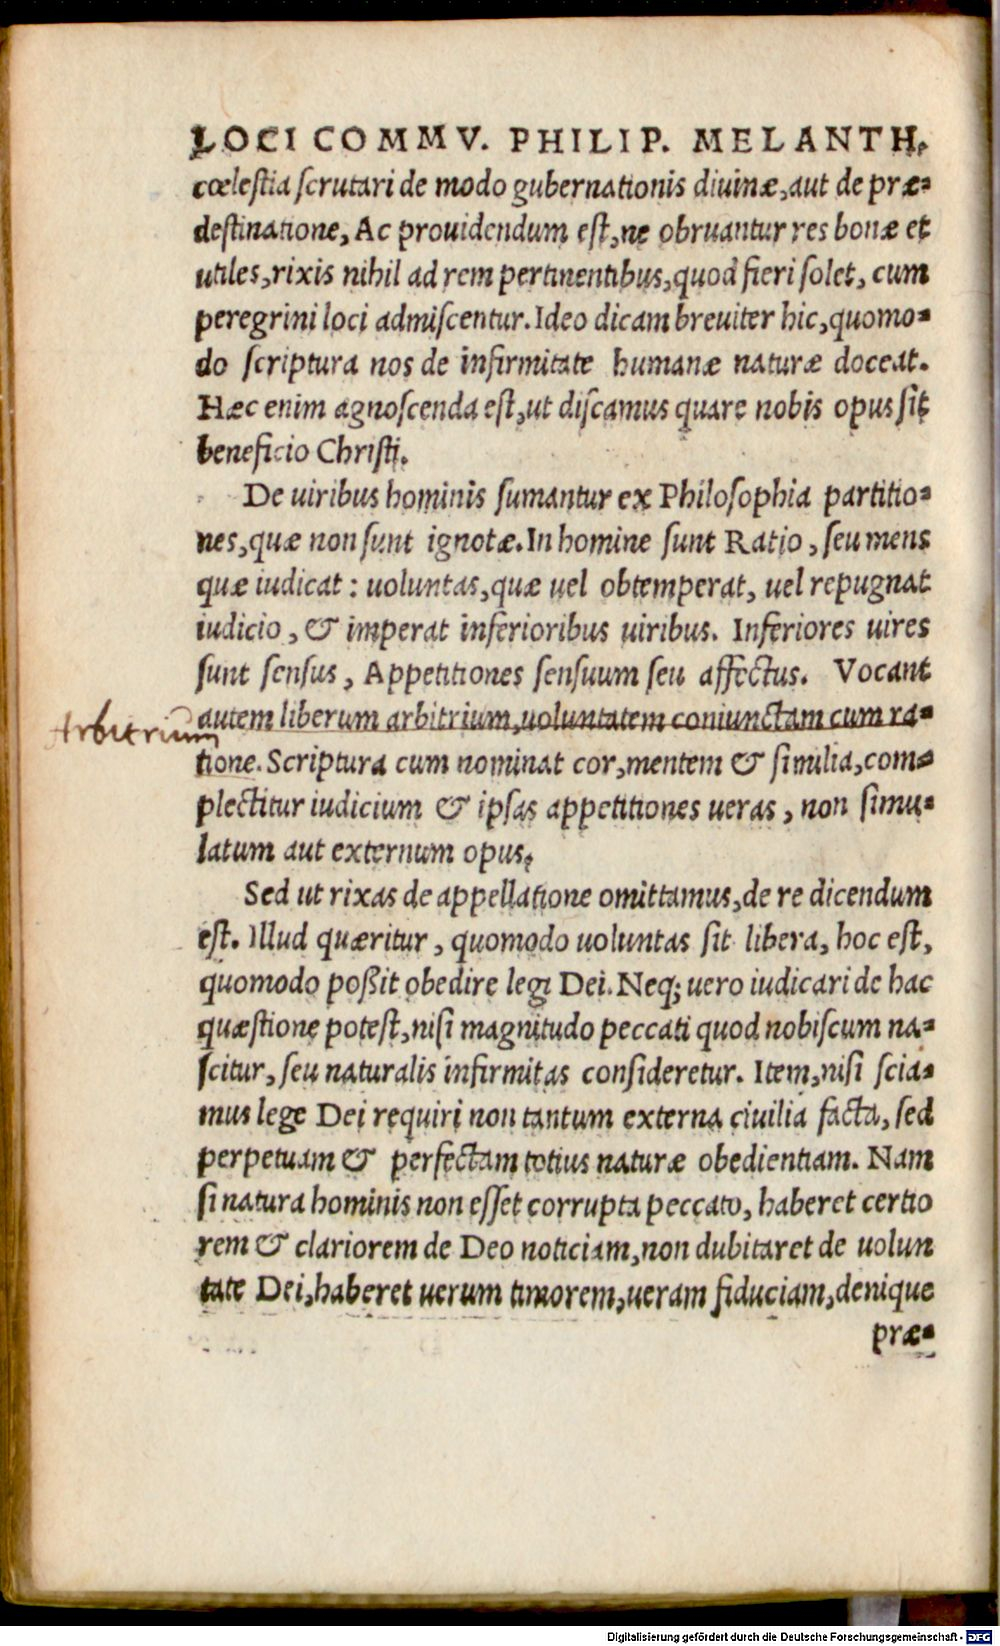 LOCI COMMV. PHILIP. MELANTH.
cœlestia scrutari de modo gubernationis diuinæ, aut de præ-
destinatione, Ac prouidendum est, ne obruantur res bonæ et
utiles, rixis nihil ad rem pertinentibus, quod fieri solet, cum
peregrini loci admiscentur. Ideo dicam breuiter hic, quomo-
do scriptura nos de infirmitate humanæ naturæ doceat.
Hæc enim agnoscenda est, ut discamus quare nobis opus sit
beneficio Christi.
De uiribus hominis sumantur ex Philosophia partitio-
nes, quæ non sunt ignotæ. In homine sunt Ratio, seu mens
quæ iudicat: uoluntas, quæ uel obtemperat, uel repugnat
iudicio, & imperat inferioribus uiribus. Inferiores uires
sunt sensus, Appetitiones sensuum seu affectus. Vocant
autem liberum arbitrium, uoluntatem coniunctam cum ra-
Arbitrium
tione. Scriptura cum nominat cor, mentem & similia, com-
plectitur iudicium & ipsas appetitiones ueras, non simu-
latum aut externum opus.
Sed ut rixas de appellatione omittamus, de re dicendum
est. Illud quæritur, quomodo uoluntas sit libera, hoc est,
quomodo poßit obedire legi Dei. Neq; uero iudicari de hac
quæstione potest, nisi magnitudo peccati quod nobiscum na-
scitur, seu naturalis infirmitas consideretur. Item, nisi scia-
mus lege Dei requiri non tantum externa ciuilia facta, sed
perpetuam & perfectam totius naturæ obedientiam. Nam
si natura hominis non esset corrupta peccato, haberet certio
rem & clariorem de Deo noticiam, non dubitaret de uolun
tate Dei, haberet uerum timorem, ueram fiduciam, denique
præ-
Digitalisierung gefördert durch die Deutsche Forschungsgemeinschaft - DFG